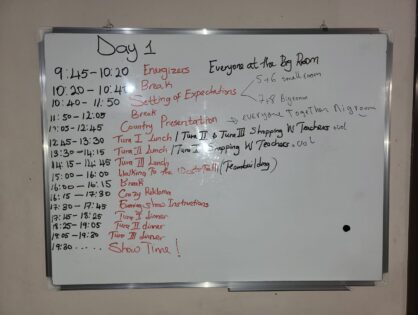 Day 1
9:45-10:20 Energizers Everyone at the Big Room
10:20 - 10:40 Break
10:40 - 11:50 Setting of Expectations
5+6 small room
7+8 Bigroom
11:50 - 12:05 Break
12:05-12:45 Country Presentation → everyone Together Bigroom
12:45-13:30 Tura I Lunch / Tura II & Tura III Shopping W Teachers + vol
13:30-14:15 Tura II Lunch / Tura I Shopping W Teachers + vol
14:15-14:45 Tura III Lunch
15:00-16:00 Walking To the (Teambuilding)
16:00-16:15 Break
16:15 - 17:30 Crazy Reklama
17:30 - 17:45 Evening Show Instructions
17:45 - 18:25 Tura I dinner
18:25-19:05 Tura II dinner
19:05-19:30 Tura III dinner
19:30 ..... Show Time!